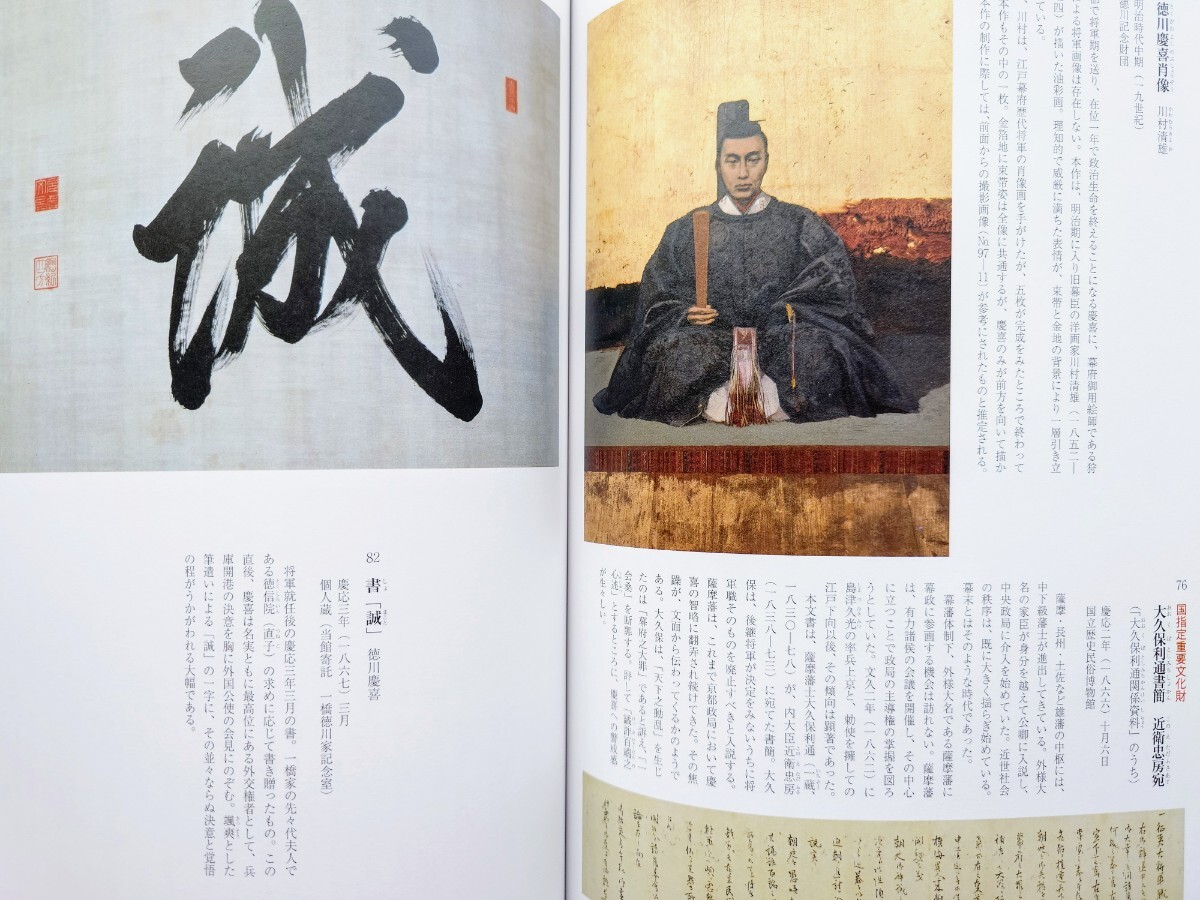 徳川慶喜肖像　川村清雄
明治時代中期（一九世紀）
徳川記念財団
で将軍期を送り、在位一年で政治生命を終えることになる慶喜に、幕府御用絵師である狩
よる将軍画像は存在しない。本作は、明治期に入り旧幕臣の洋画家川村清雄（一八五二―
四）が描いた油彩画。理知的で威厳に満ちた表情が、束帯と金地の背景により一層引き立
ている。
、川村は、江戸幕府歴代将軍の肖像画を手がけたが、五枚が完成をみたところで終わって
本作もその中の一枚。金箔地に束帯姿は全像に共通するが、慶喜のみが前方を向いて描か
本作の制作に際しては、前面からの撮影画像（No.97―11）が参考にされたものと推定される。
76
国指定重要文化財
大久保利通書簡　近衛忠房宛
（「大久保利通関係資料」のうち）
慶応二年（一八六六）十月六日
国立歴史民俗博物館
薩摩・長州・土佐など雄藩の中枢には、
中下級藩士が進出してきている。外様大
名の家臣が身分を越えて公卿に入説し、
中央政局に介入を始めていた。近世社会
の秩序は、既に大きく揺らぎ始めている。
幕末とはそのような時代であった。
幕藩体制下、外様大名である薩摩藩に
幕政に参画する機会は訪れない。薩摩藩
は、有力諸侯の会議を開催し、その中心
に立つことで政局の主導権の掌握を図ろ
うとしていた。文久二年（一八六二）に
島津久光の率兵上京と、勅使を擁しての
江戸下向以後、その傾向は顕著であった。
本文書は、薩摩藩士大久保利通（一蔵、
一八三〇―七八）が、内大臣近衛忠房
（一八三八―七三）に宛てた書簡。大久
保は、後継将軍が決定をみないうちに将
軍職そのものを廃止すべきと入説する。
薩摩藩は、これまで京都政局において慶
喜の智略に翻弄され続けてきた。その焦
躁が、文面から伝わってくるかのようで
ある。大久保は、「天下之動乱」を生じ
たのは「幕府之大罪」であると訴え、「一
会桑」を断罪する。評して「譎詐百端之
心術」とするところに、慶喜への警戒感
が生々しい。
誠
82
書「誠」　徳川慶喜
慶応三年（一八六七）三月
個人蔵（当館寄託　一橋徳川家記念室）
将軍就任後の慶応三年三月の書。一橋家の先々代夫人で
ある徳信院（直子）の求めに応じて書き贈ったもの。この
直後、慶喜は名実ともに最高位にある外交権者として、兵
庫開港の決意を胸に外国公使の会見にのぞむ。颯爽とした
筆遣いによる「誠」の一字に、その並々ならぬ決意と覚悟
の程がうかがわれる大幅である。